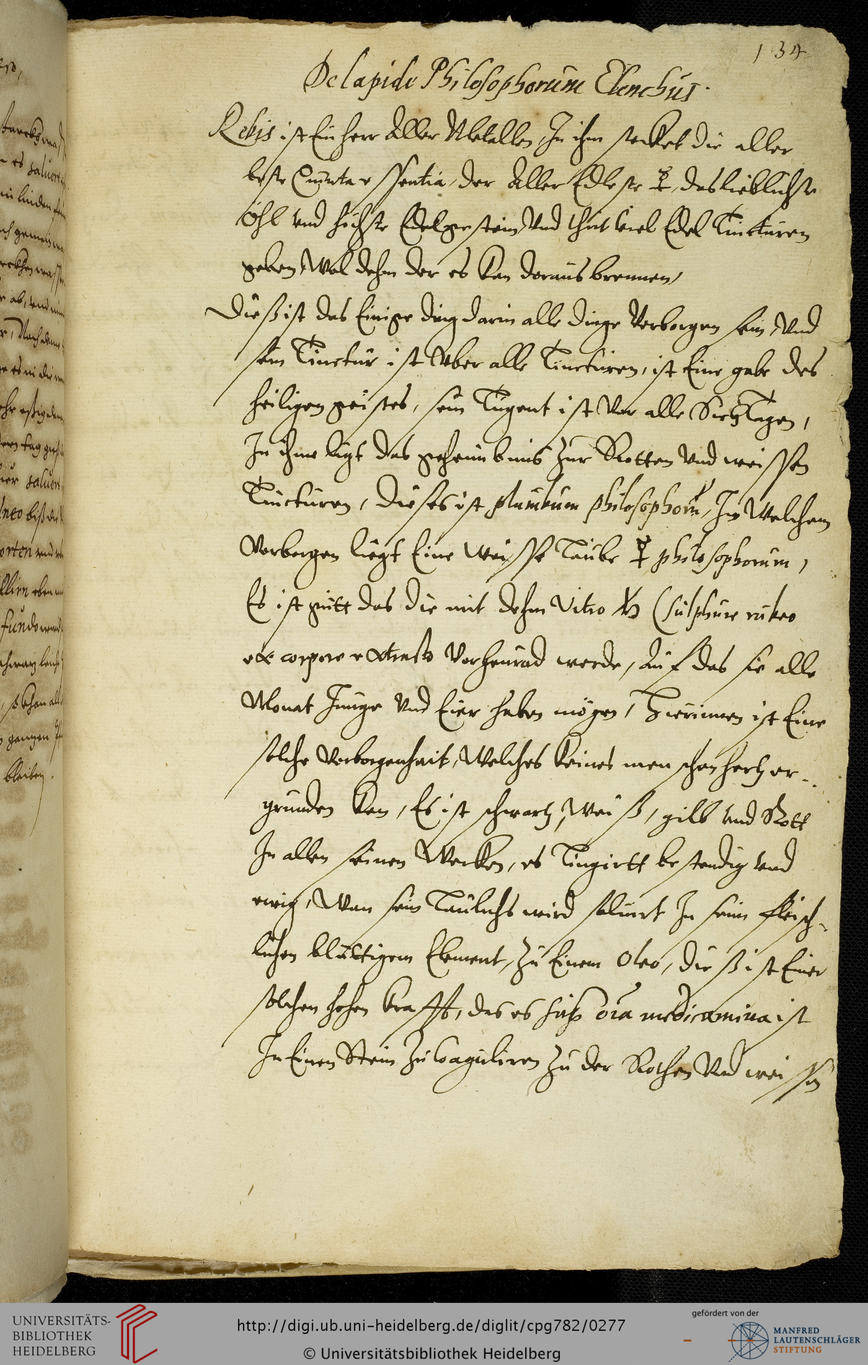 134
De lapide Philosophorum Elenchus.
Rebis ist Ein herr Aller Metallen, In ihm stecket die aller
beste Quinta essentia, der Aller Edleste ☿, das lieblichste
Öhl vnd höchste Edelgestein, Vnd thut viel Edel Tincturen
geben, Wol dehm der es kan doraus brennen,
Dieß ist das Einige ding darin alle dinge Verborgen sein, Vnd
sein Tinctur ist Vber alle Tincturen, ist Eine gabe des
heiligen geistes, sein Tugent ist Vor alle
In ihme ligt das geheimbnis zur Rotten Vnd weissen
Tincturen, dieses ist plumbum philosophorũ, In Welchem
Verborgen liegt Eine Weisse Taube ☿ philosophorum,
Es ist gutt das die mit dehm Vitro ♄ (sulphure rubeo
ex corpore extracto Verheurad werde, Auf das sie alle
Monat Junge Vnd Eier haben mögen, Hierinnen ist Eine
solche Verborgenheit, Welches keines menschen hertz er-
grunden kan, Es ist schwartz, Weiß, gilb Vnd Rott
In allen seinen Wercken, es Tingirtt bestendig vnd
ewig, Wan sein wird soluirt In sein fleisch-
lichen bluttigem Element, Zu Einem Oleo, dieß ist Einer
solchen hohen krafft, das es õia medicamina ist
In Einen Stein Zu Coaguliren Zu der Rothen Vnd weissen
saluiren
linden
gemein
ab, vnd
saluirt
vnd
eben
fundo
bleiben.
UNIVERSITÄTS-
BIBLIOTHEK
HEIDELBERG
http://digi.ub.uni-heidelberg.de/diglit/cpg782/0277
© Universitätsbibliothek Heidelberg
gefördert von der
MANFRED
LAUTENSCHLÄGER
STIFTUNG